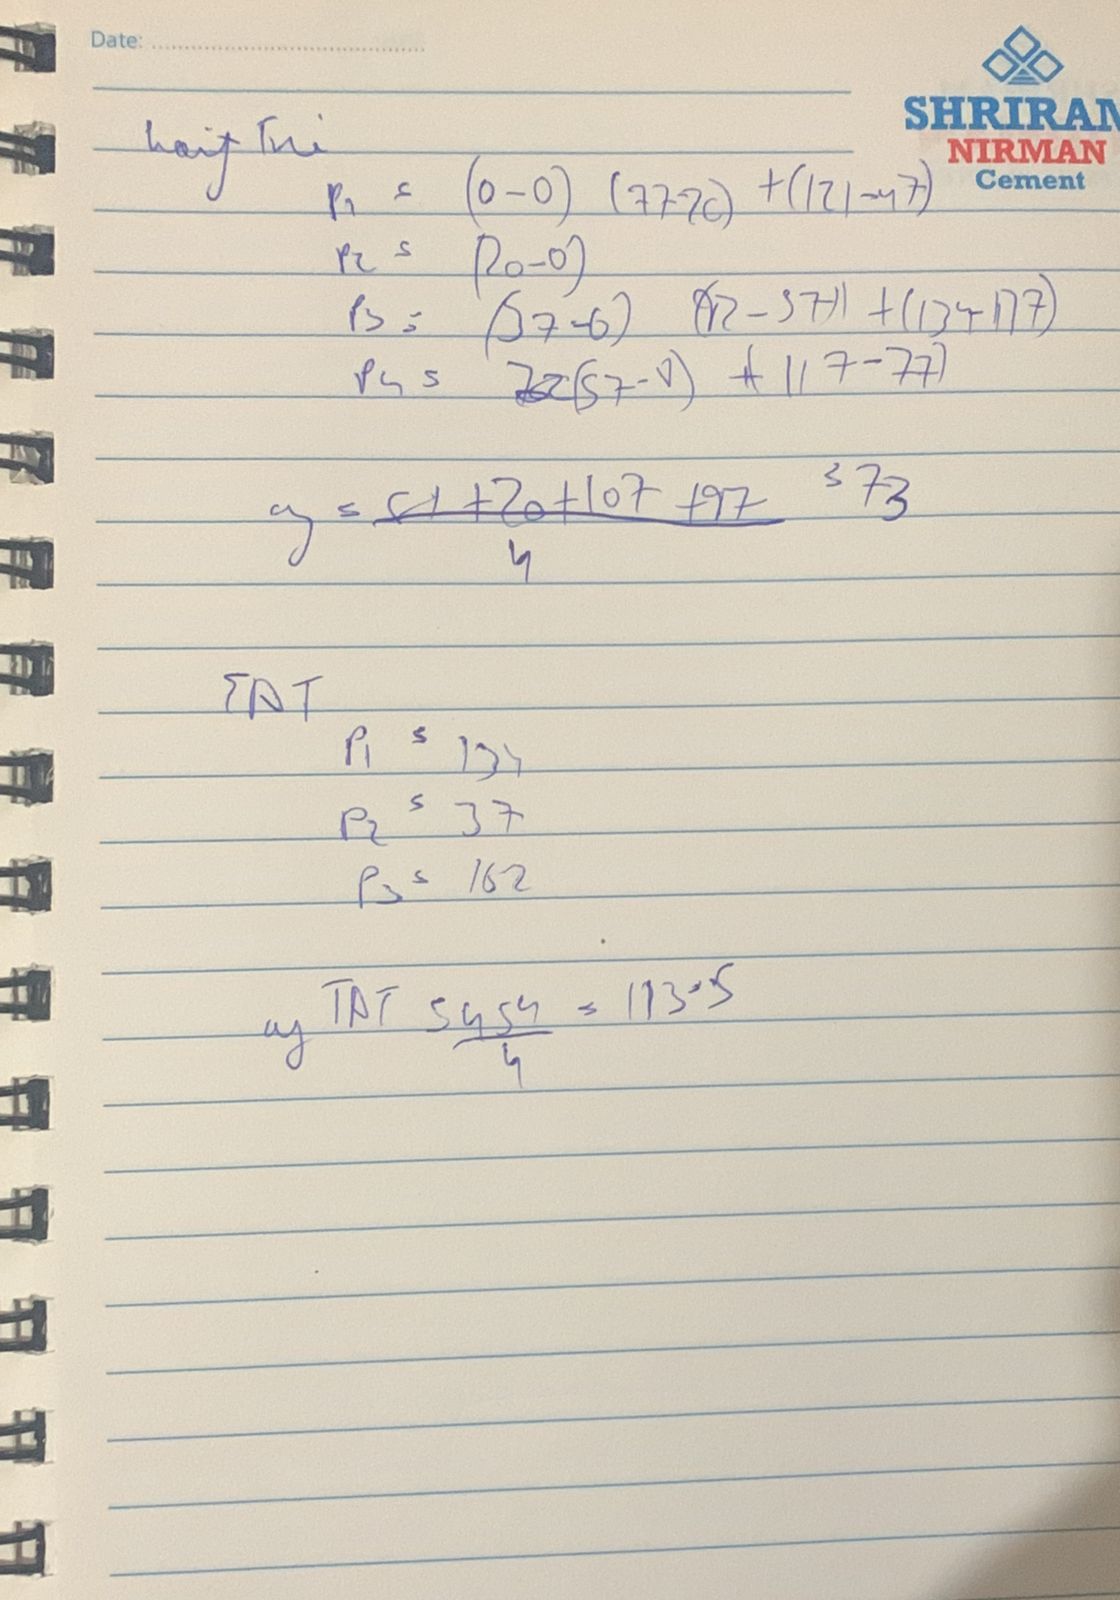 Date:
SHRIRAM
NIRMAN
Cement
P1 = (0-0) (77-20) + (121-97)
P2 = (20-0)
P3 = (37-0) + (134-117)
P4 = (57-0) + (117-77)
+20+107+97 = 73
4
TAT
P1 = 134
P2 = 37
P3 = 162
avg TAT = 454 = 113.5
4